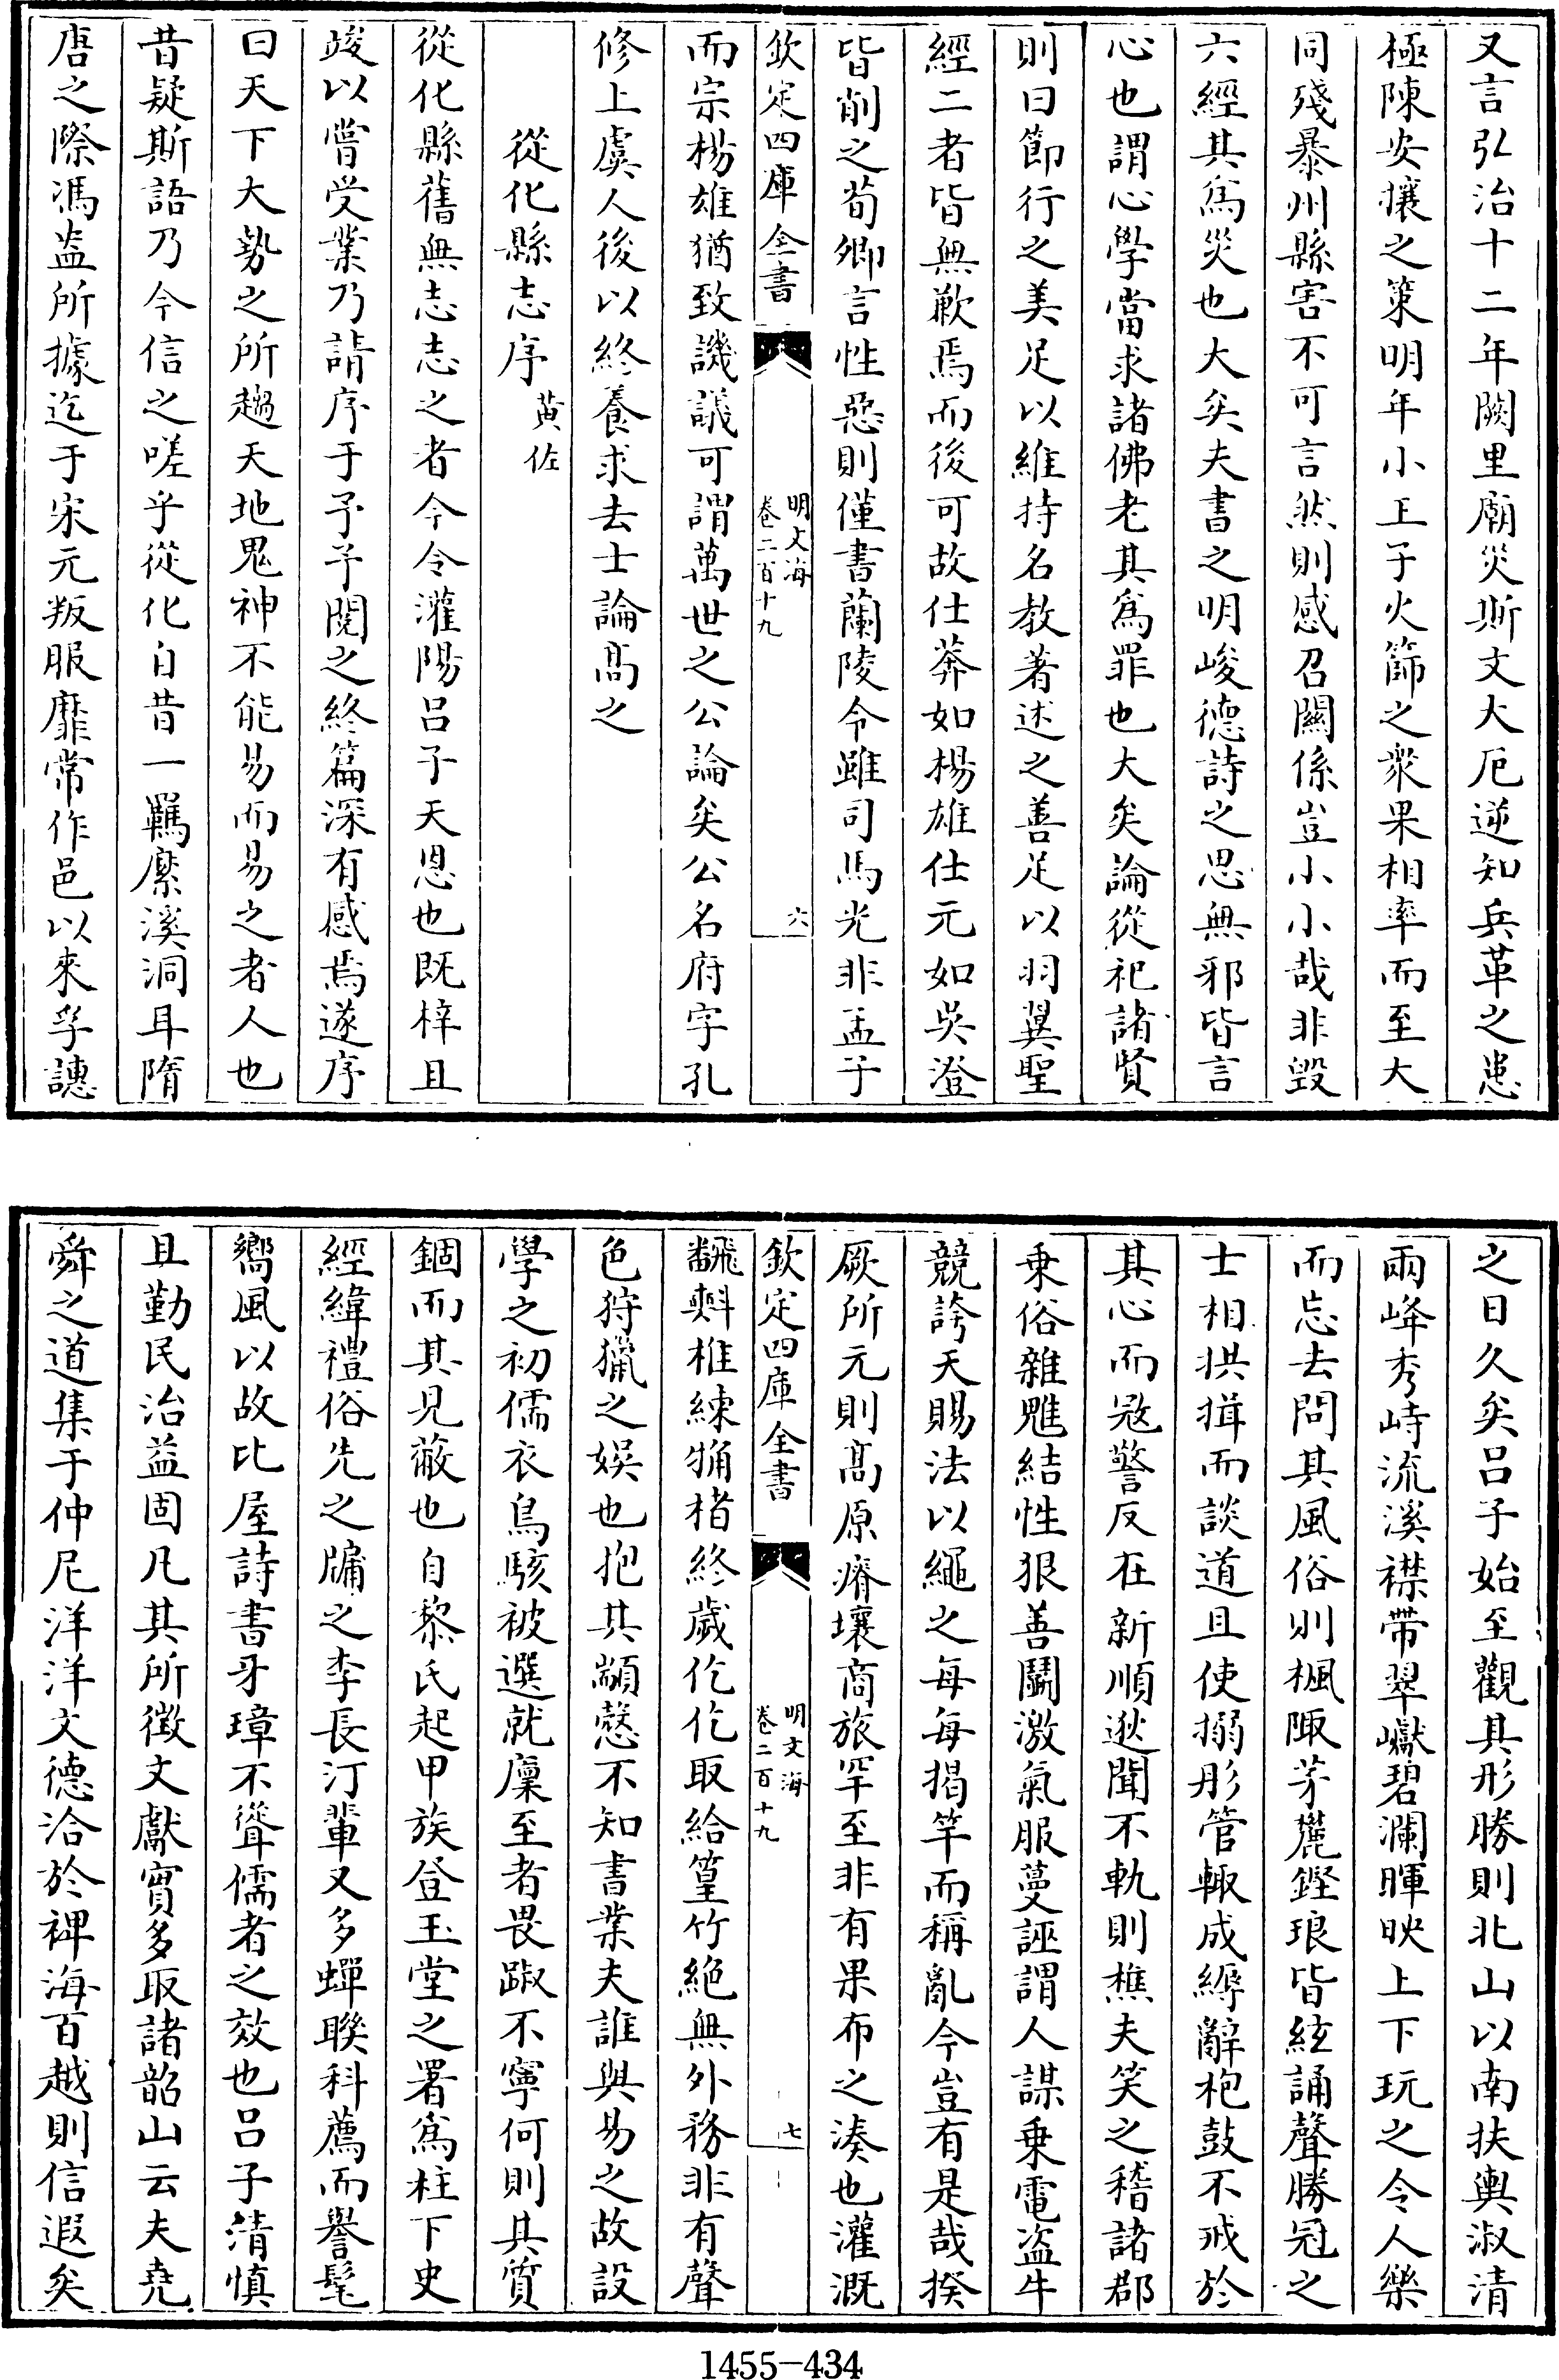 又言弘治十二年闕里廟災斯文大厄逆知兵革之患
極陳安攘之策明年小王子火篩之衆果相率而至大
同殘暴州縣害不可言然則感召關係豈小小哉非毀
六經其為災也大矣夫書之明峻德詩之思無邪皆言
心也謂心學當求諸佛老其為罪也大矣論從祀諸賢
則曰節行之美足以維持名教著述之善足以羽翼聖
經二者皆無歉焉而後可故仕莽如楊雄仕元如吳澄
皆削之荀卿言性惡則僅書蘭陵令雖司馬光非孟子
欽定四庫全書
明文海
卷二百十九
六
而宗楊雄猶致譏議可謂萬世之公論矣公名府字孔
修上虞人後以終養求去士論高之
從化縣志序 黄佐
從化縣舊無志志之者今令灌陽吕子天恩也既梓且
竣以嘗受業乃請序于予予閱之終篇深有感焉遂序
曰天下大勢之所趨天地鬼神不能易而易之者人也
昔疑斯語乃今信之嗟乎從化自昔一羈縻溪洞耳隋
唐之際馮盎所據迄于宋元叛服靡常作邑以來孚譓
之日久矣吕子始至觀其形勝則北山以南扶輿淑清
兩峰秀峙流溪襟帶翠巘碧瀾暉映上下玩之令人樂
而忘去問其風俗則楓陬茅麓鏗琅皆絃誦聲勝冠之
士相拱揖而談道且使搦彤管輙成縟辭枹鼓不戒於
其心而冦警反在新順逖聞不軌則樵夫笑之稽諸郡
乗俗雜魋結性狠善鬭激氣服蔓誣謂人謀乗電盜牛
競誇天賜法以繩之每每揭竿而稱亂今豈有是哉揆
厥所元則髙原瘠壤商旅罕至非有果布之湊也灌溉
欽定四庫全書
明文海
卷二百十九
七
飜㪺椎練捅楮終歲仡仡取給篁竹絶無外務非有聲
色狩獵之娯也抱其顓慤不知書業夫誰與易之故設
學之初儒衣鳥駭被選就廩至者畏踧不寧何則其質
錮而其見蔽也自黎氏起甲族登玉堂之署為柱下史
經緯禮俗先之牖之李長汀輩又多蟬聯科薦而譽髦
嚮風以故比屋詩書牙璋不聳儒者之效也吕子清慎
且勤民治益固凡其所徵文獻實多取諸韶山云夫堯
舜之道集于仲尼洋洋文德洽於裨海百越則信遐矣
1455-434